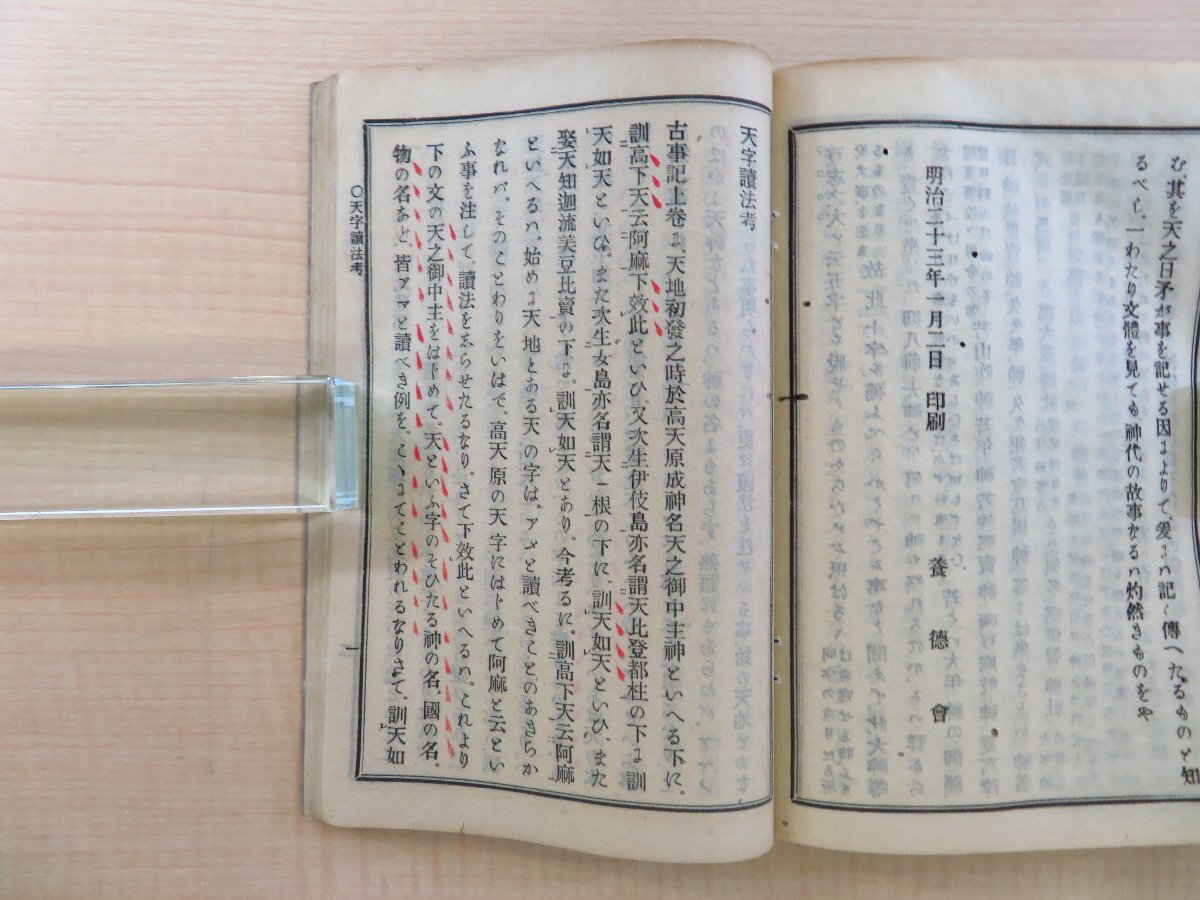 む、其を天之日矛が事を記せる因によりて、爰には記し傳へたるものと知
るべし、一わたり文體を見ても神代の故事なるは灼然きものをや
明治三十三年一月二日 印刷 養德會
天字讀法考
古事記上卷に。天地初發之時於高天原成神名天之御中主神といへる下に。
訓高下天云阿麻下效此といひ。又次生伊伎島亦名謂天比登都柱の下に訓
天如天といひ。また次生女島亦名謂天一根の下に。訓天如天といひ、また
娶天知迦流美豆比賣の下に。訓天如天とあり。今考るに。訓高下天云阿麻
といへるは。始めに天地とある天の字は。アメと讀べきことのあきらか
なれバ。そのことわりをいはで。高天原の天字にはじめて阿麻と云とい
ふ事を注して、讀法をゑらせたるなり。さて下效此といへるは。これより
下の文の天之御中主をはじめて。天といふ字のそひたる神の名。國の名。
物の名など、皆アマと讀べき例を。こゝにてことわれるなりさて。訓天如
〇天字讀法考
一